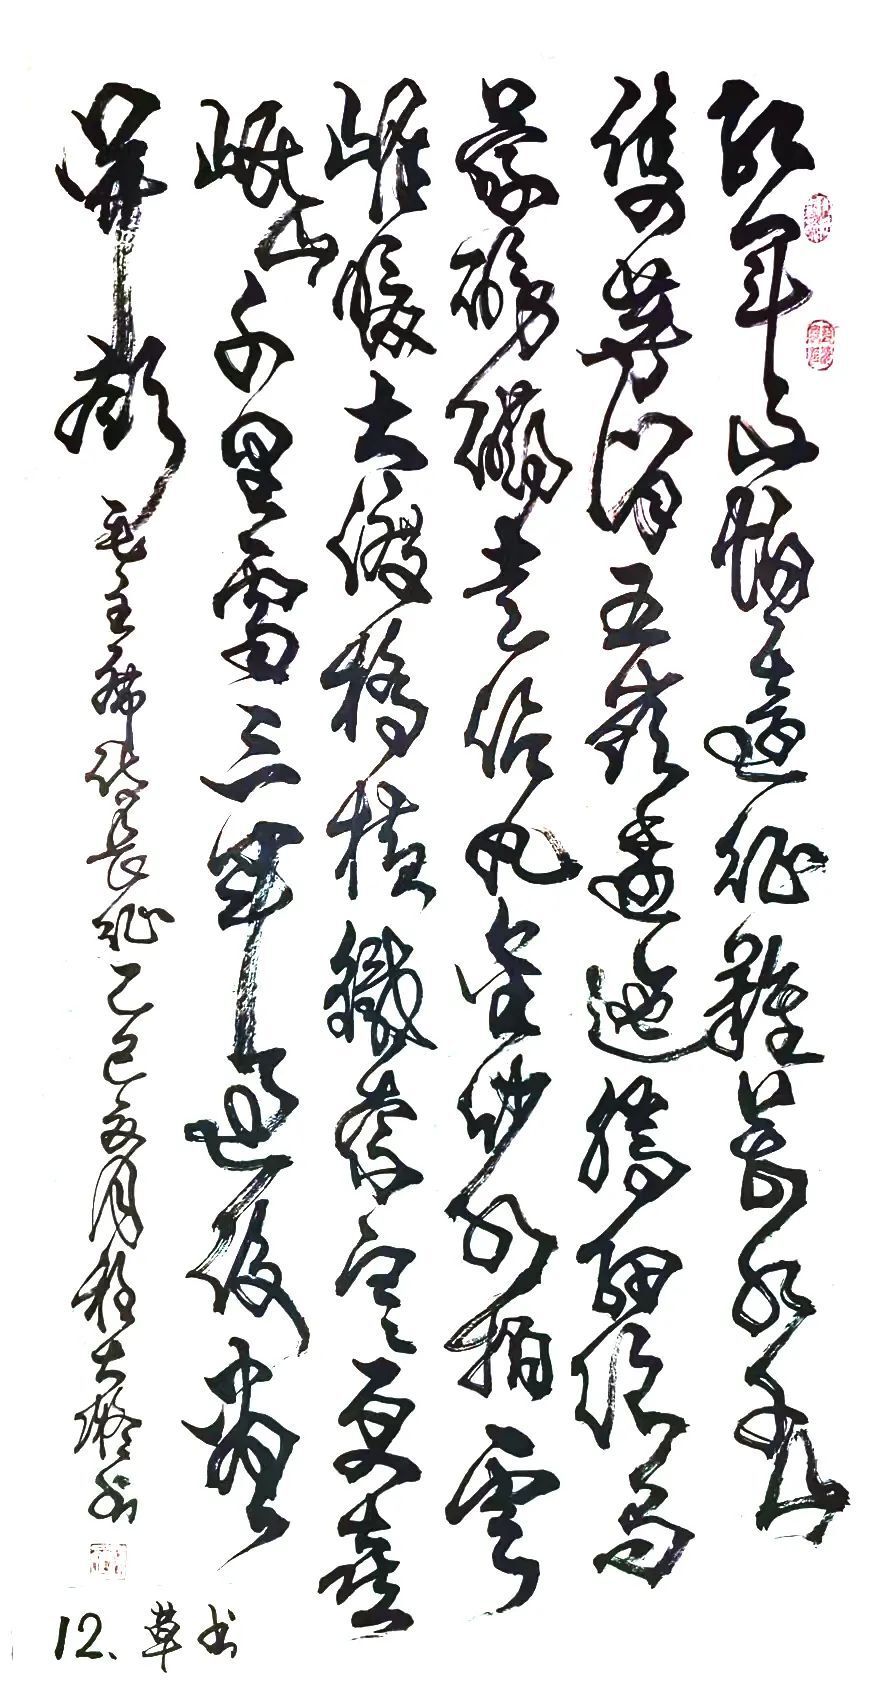 紅軍不怕遠征難萬水千山
隻等閒五嶺逶迤騰細浪烏
蒙磅礴走泥丸金沙水拍雲
崖暖大渡橋橫鐵索寒更喜
岷山千里雪三軍過後盡
開顏
毛主席詩長征乙巳夏月程大書
12、草书